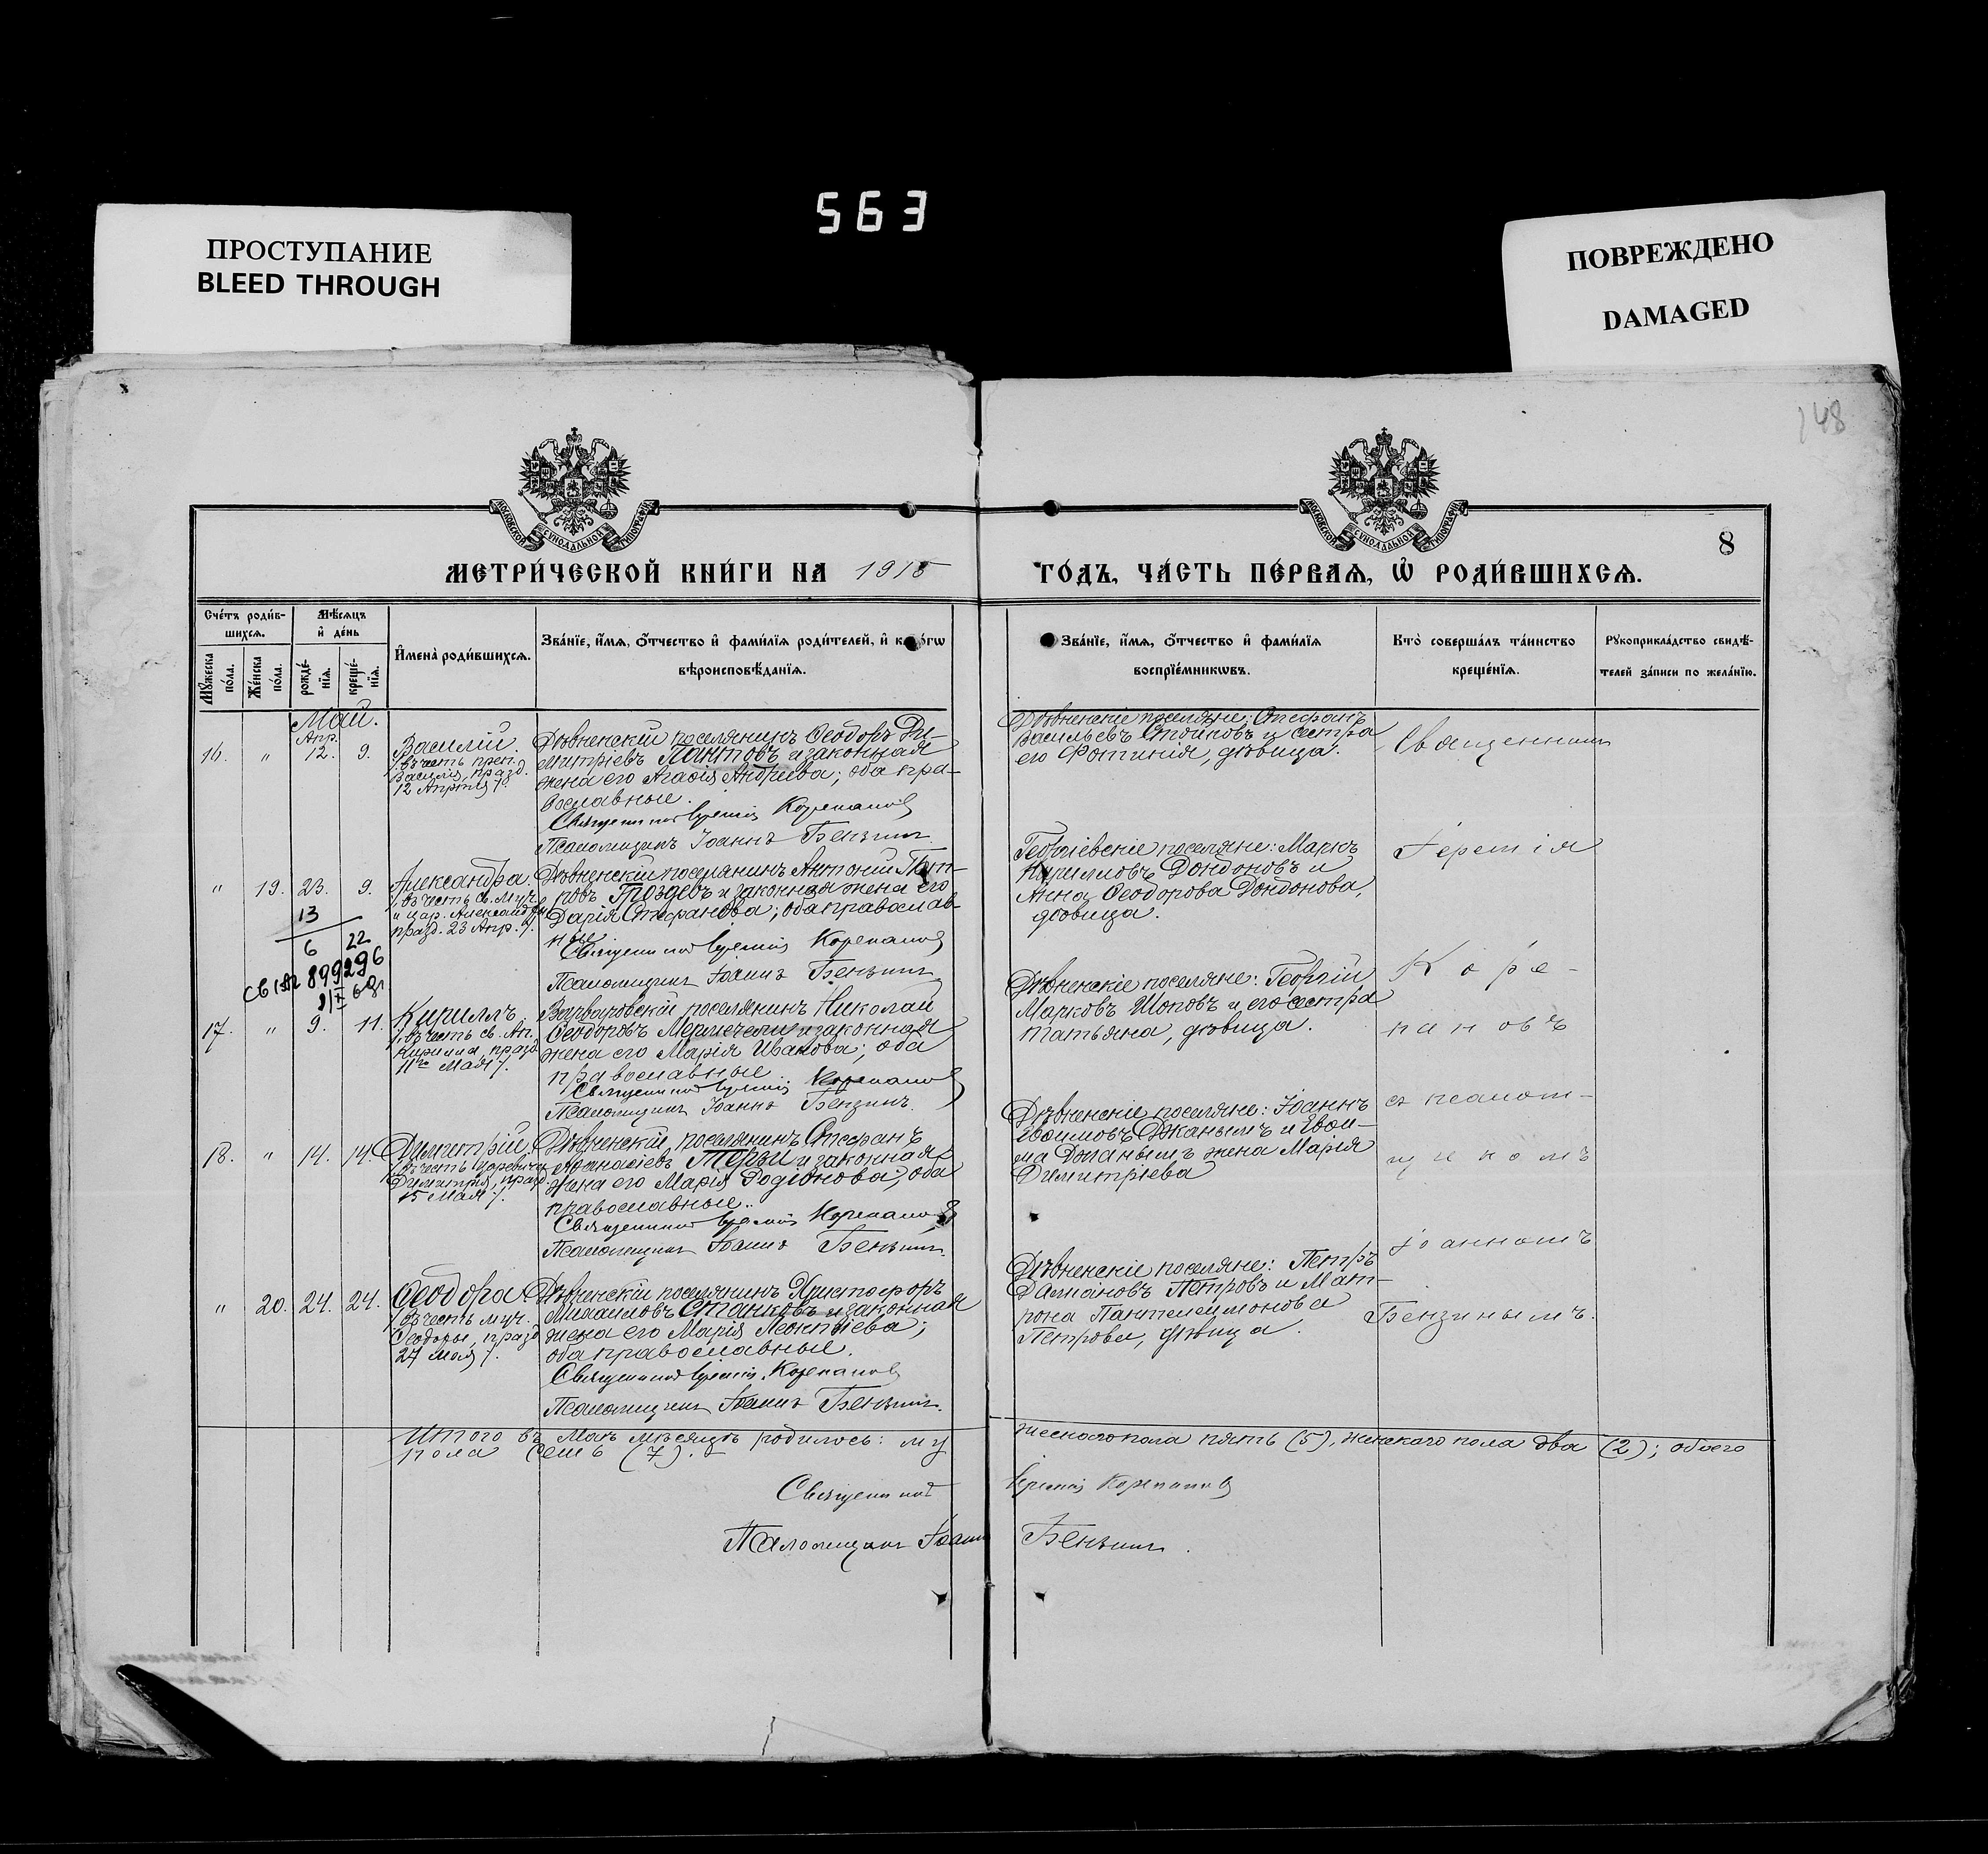 563
ПРОСТУПАНИЕ
BLEED THROUGH
ПОВРЕЖДЕНО
DAMAGED
148
8
МОСКОВСКОЙ СѴНОДАЛЬНОЙ ТИПОГРАФІИ
МОСКОВСКОЙ СѴНОДАЛЬНОЙ ТИПОГРАФІИ
МЕТРИ́ЧЕСКОЙ КНИ́ГИ НА 1915
ГО́ДЪ, ЧА́СТЬ ПЕ́РВАѦ, Ѡ҆ РОДИ́ВШИХСѦ.
Сче́тъ роди́в-
шихсѧ.
Мꙋ́жеска по́ла.
Же́нска по́ла.
Мѣ́сѧцъ
и҆ де́нь
рожде́-
нїѧ.
креще́-
нїѧ.
И҆мена̀ роди́вшихсѧ.
Зва́нїе, и҆́мѧ, ѻ҆́тчество и҆ фами́лїѧ роди́телей, и҆ к о́гѡ
вѣроисповѣ́данїѧ.
Зва́нїе, и҆́мѧ, ѻ҆́тчество и҆ фами́лїѧ
воспрїе́мникѡвъ.
Кто̀ соверша́лъ та́инство
креще́нїѧ.
Рꙋкоприкла́дство свидѣ́-
телей за́писи по жела́нїю.
Май.
16. " Апр. 12. 9.
Василій.
/въ честь преп.
Василія, празд.
12 Апрѣля/.
Дѣвненскій поселянинъ Ѳеодоръ Ди-
митріевъ Пантовъ и законная
жена его Агаѳія Андреева; оба пра-
вославные.
Священникъ Іеремія Корепановъ
Псаломщикъ Іоаннъ Бензинъ.
Дѣвненскіе поселяне: Стефанъ
Васильевъ Стойновъ и сестра
его Фотинія, дѣвица.
Священникъ
" 19. 23. 9.
13
6 22
899296
Александра.
/въ честь св. муч.
и цар. Александры
празд. 23 Апр./.
Дѣвненскій поселянинъ Антоній Пет-
ровъ Гроздевъ и законная жена его
Дарія Стефанова; оба православ-
ные.
Священникъ Іеремія Корепановъ
Псаломщикъ Іоаннъ Бензинъ
Георгіевскіе поселяне: Маркъ
Кирилловъ Дондоновъ и
Анна Ѳеодорова Дондонова,
дѣвица.
Іеремія
17. " 9. 11.
Кириллъ.
/въ честь св. Ап.
Кирилла, празд.
11го Мая/.
поселянинъ Николай
Ѳеодоровъ и законная
жена его Марія Иванова; оба
православные.
Священникъ Іеремія Корепановъ
Псаломщикъ Іоаннъ Бензинъ.
Дѣвненскіе поселяне: Георгій
Марковъ Шоповъ и его сестра
Татьяна, дѣвица.
Коре-
пановъ
18. " 14. 14.
Димитрій.
/въ честь Царевича
Димитрія, празд.
15 Мая/.
Дѣвненскій поселянинъ Стефанъ
Аѳанасіевъ Терзи и законная
жена его Марія Родіонова; оба
православные.
Священникъ Іеремія Корепановъ
Псаломщикъ Іоаннъ Бензинъ.
Дѣвненскіе поселяне: Іоаннъ
Евѳимовъ Джанымъ и Евѳи-
ма Джанымъ жена Марія
Димитріева
съ псалом-
щикомъ
" 20. 24. 24.
Ѳеодора.
/въ честь муч.
Ѳеодоры, празд.
27 Мая/.
Дѣвненскій поселянинъ Христофоръ
Михаиловъ Станковъ и законная
жена его Марія Леонтіева;
оба православные.
Священникъ Іеремія Корепановъ
Псаломщикъ Іоаннъ Бензинъ.
Дѣвненскіе поселяне: Петръ
Даміановъ Петровъ и Мат-
рона Пантелеимонова
Петрова, дѣвица.
Іоанномъ
Бензинымъ.
Итого въ Маѣ мѣсяцѣ родилось: му
жескаго пола пять (5), женскаго пола два (2); обоего
пола семь (7).
Священникъ Іеремія Корепановъ
Псаломщикъ Іоаннъ Бензинъ.